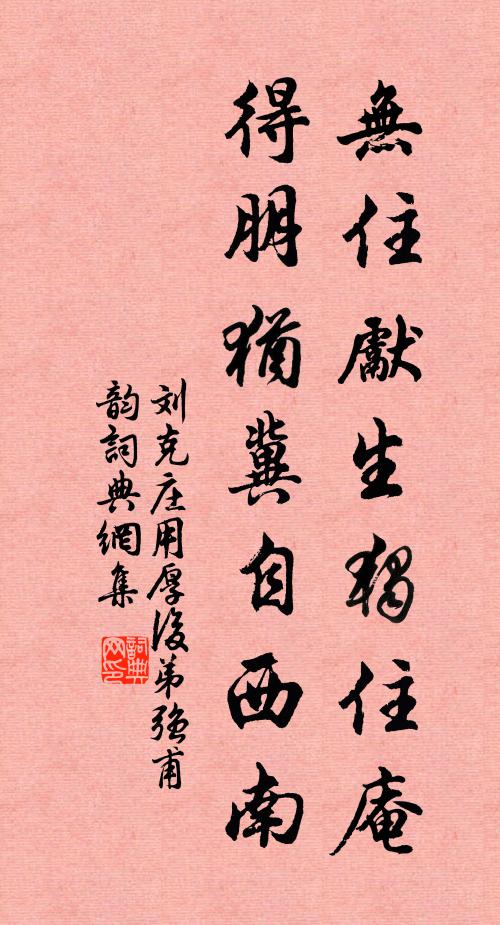 無住獻生獨住庵
得朋猶冀自西南
刘克庄用厚後弟強甫
韵詞典網集
詞典
网印